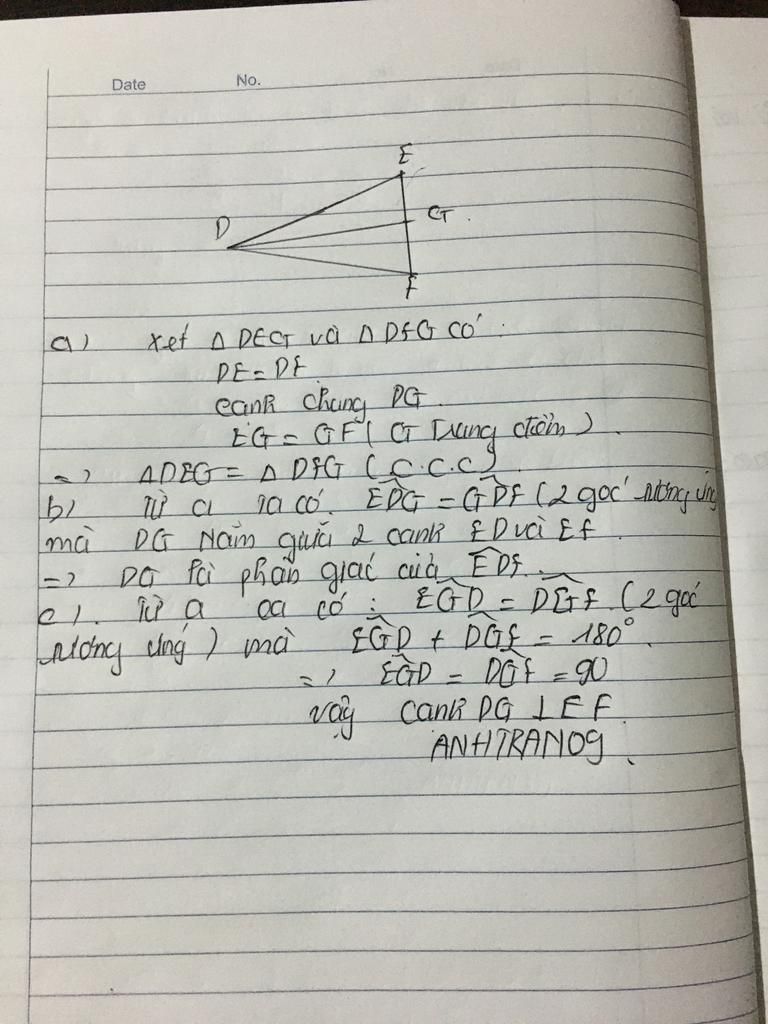 Date No.
E
D G.
F
a) xét Δ DEG và Δ DFG có:
DE = DF
cạnh chung DG.
EG = GF ( G Trung điểm ).
=> ΔDEG = Δ DFG ( C.C.C )
b) Từ a ta có. EDG = GDF ( 2 góc tương ứng
mà DG Nằm giữa 2 cạnh ED và EF.
=> DG là phân giác của EDF.
c). Từ a ta có : EGD = DGF. ( 2 góc
tương ứng ) mà EGD + DGF = 180°.
=> EGD = DGF = 90
vậy cạnh DG ⊥ EF.
ANHTRAN09.